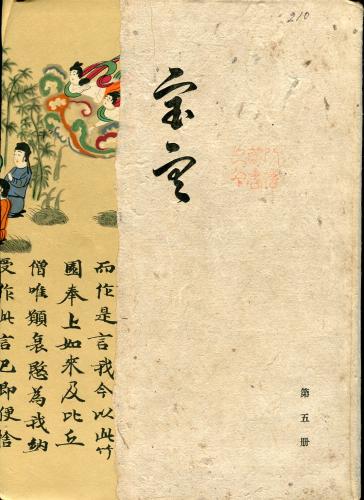 210
宝雲
第五册
而作是言我今以此竹
園奉上如来及比丘
僧唯願哀愍為我納
受作此言已即便捨